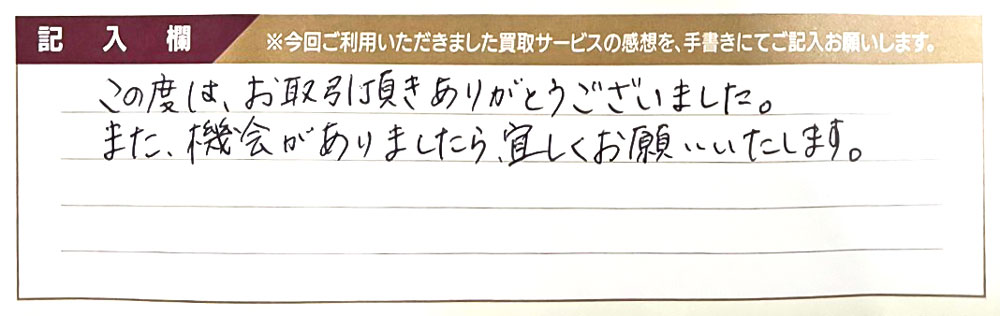 記入欄 ※今回ご利用いただきました買取サービスの感想を、手書きにてご記入お願いします。
この度は、お取引頂きありがとうございました。
また、機会がありましたら、宜しくお願いいたします。